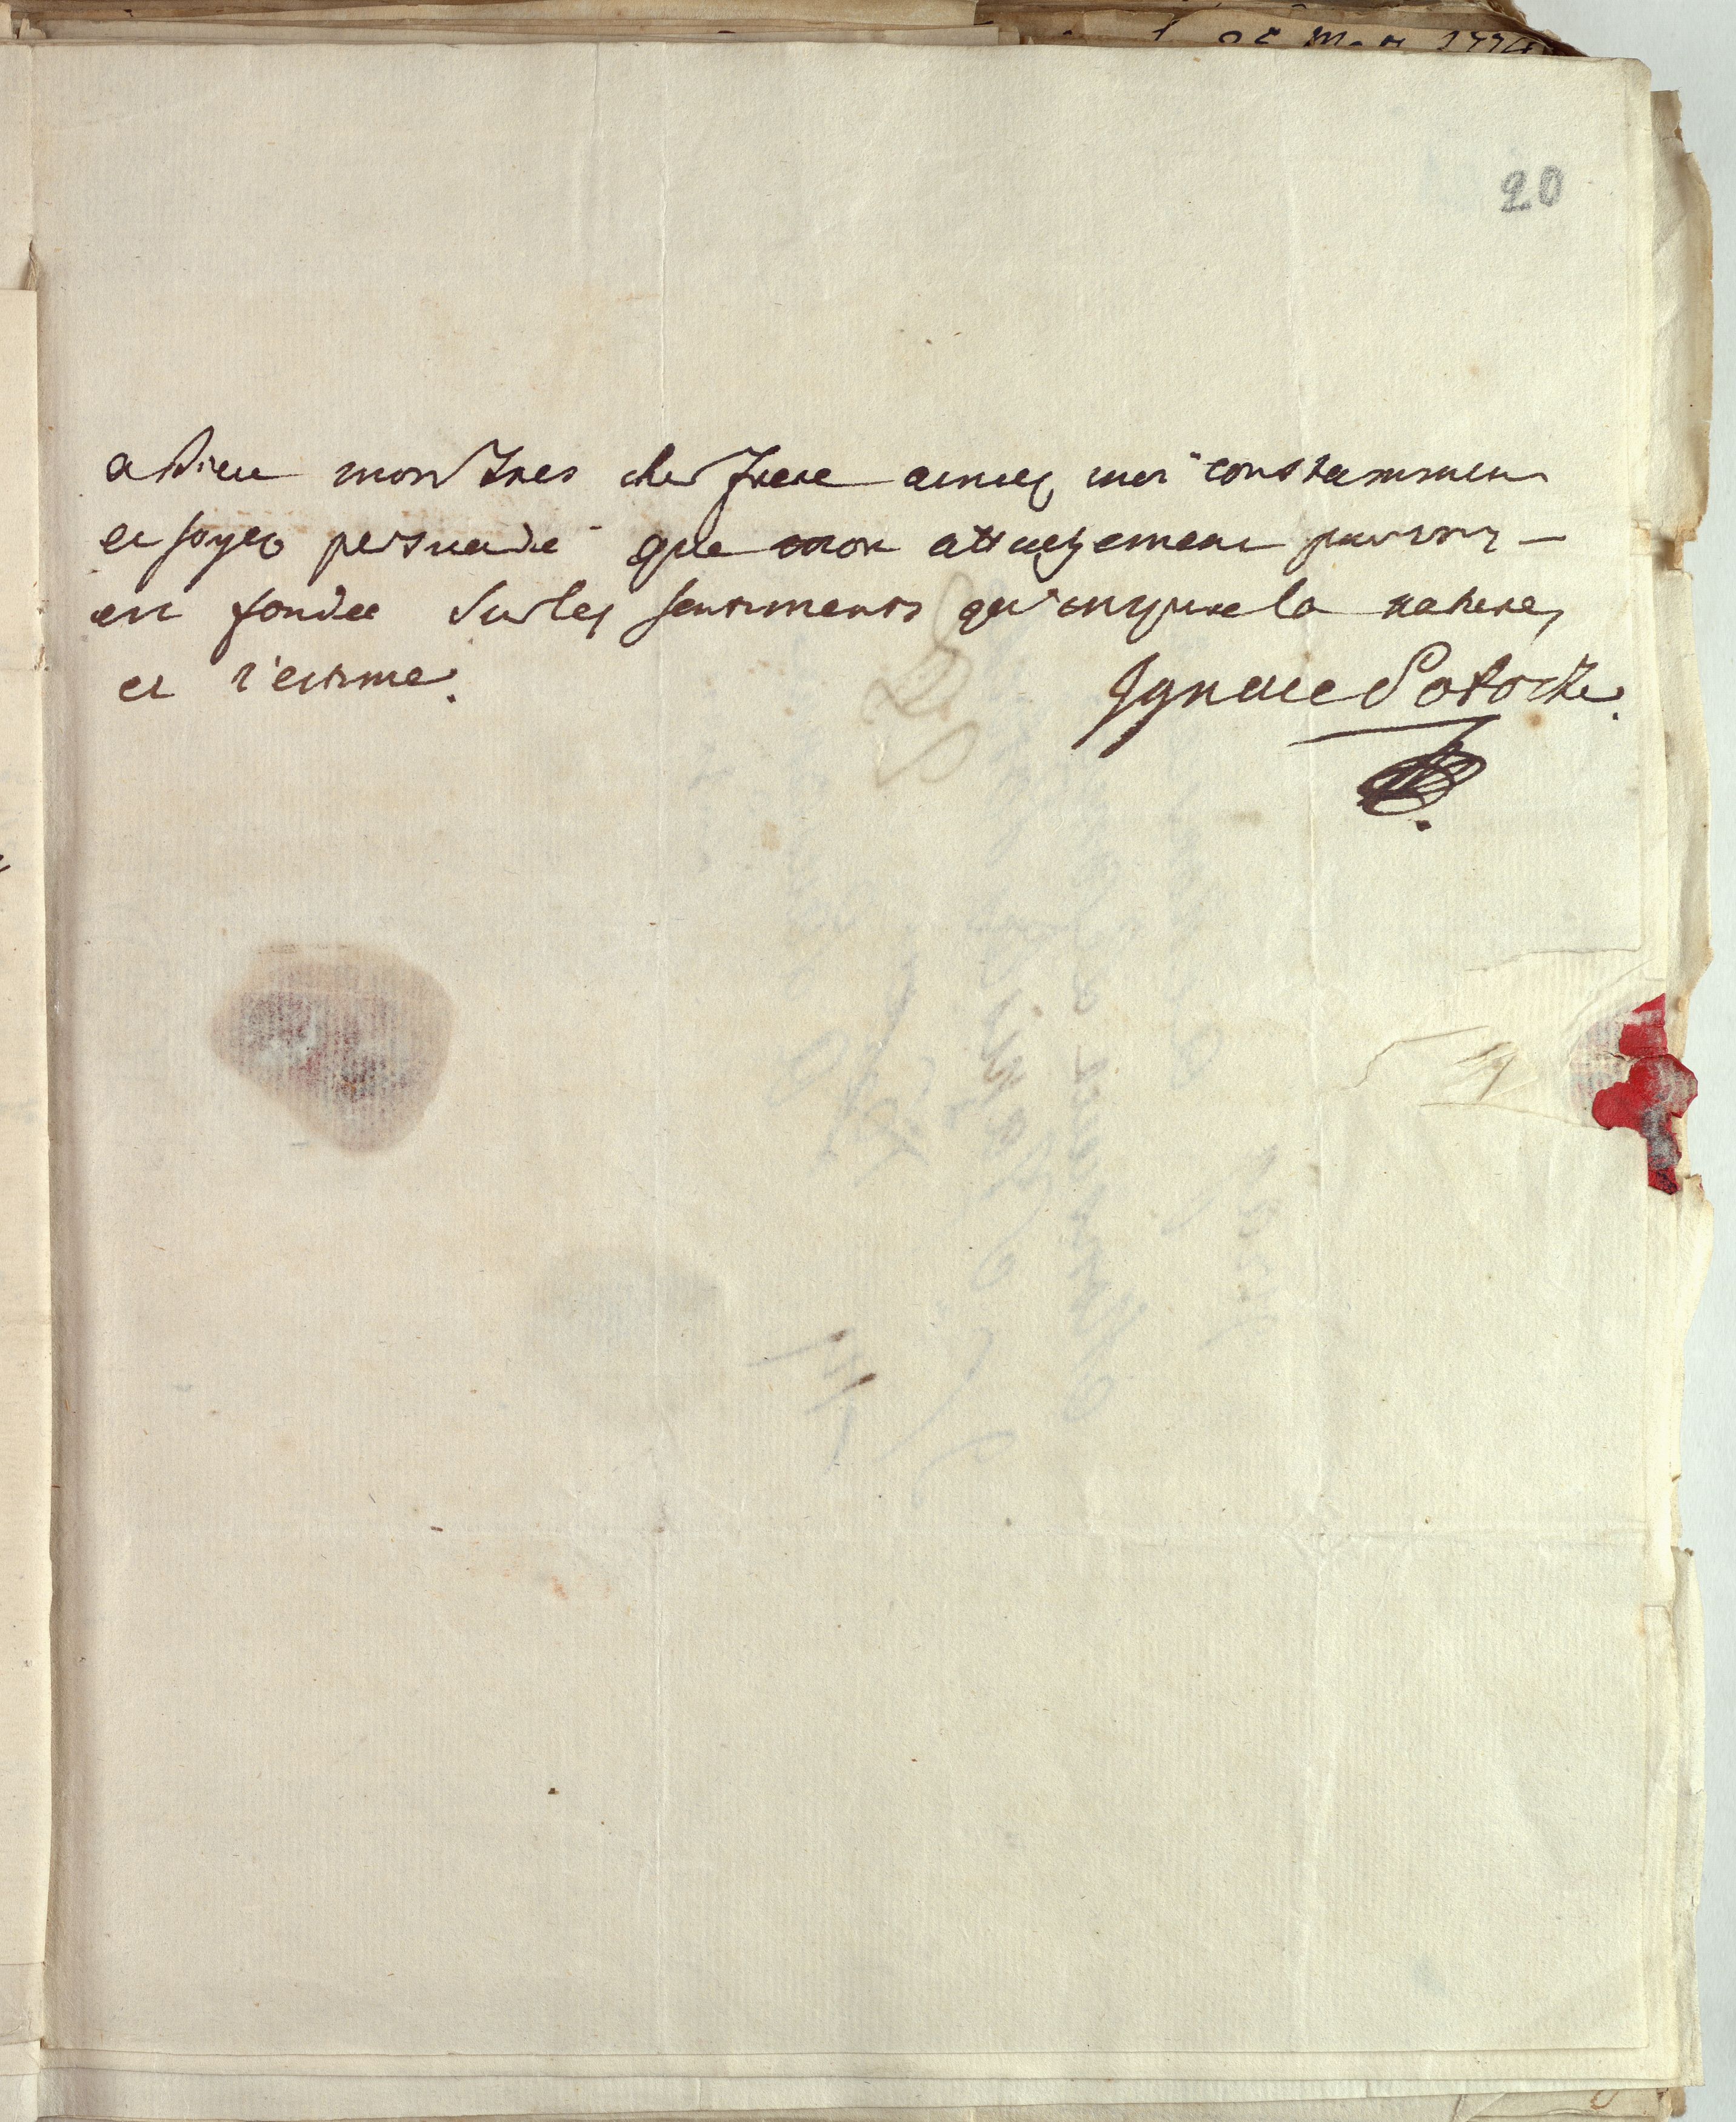 20
adieu mon tres cher frere aimez moi constamment
et soyez persuadé que mon attachement pour vous
est fondee sur les sentiments qu'inspire la nature,
et l'estime.
Ignace Potocki.